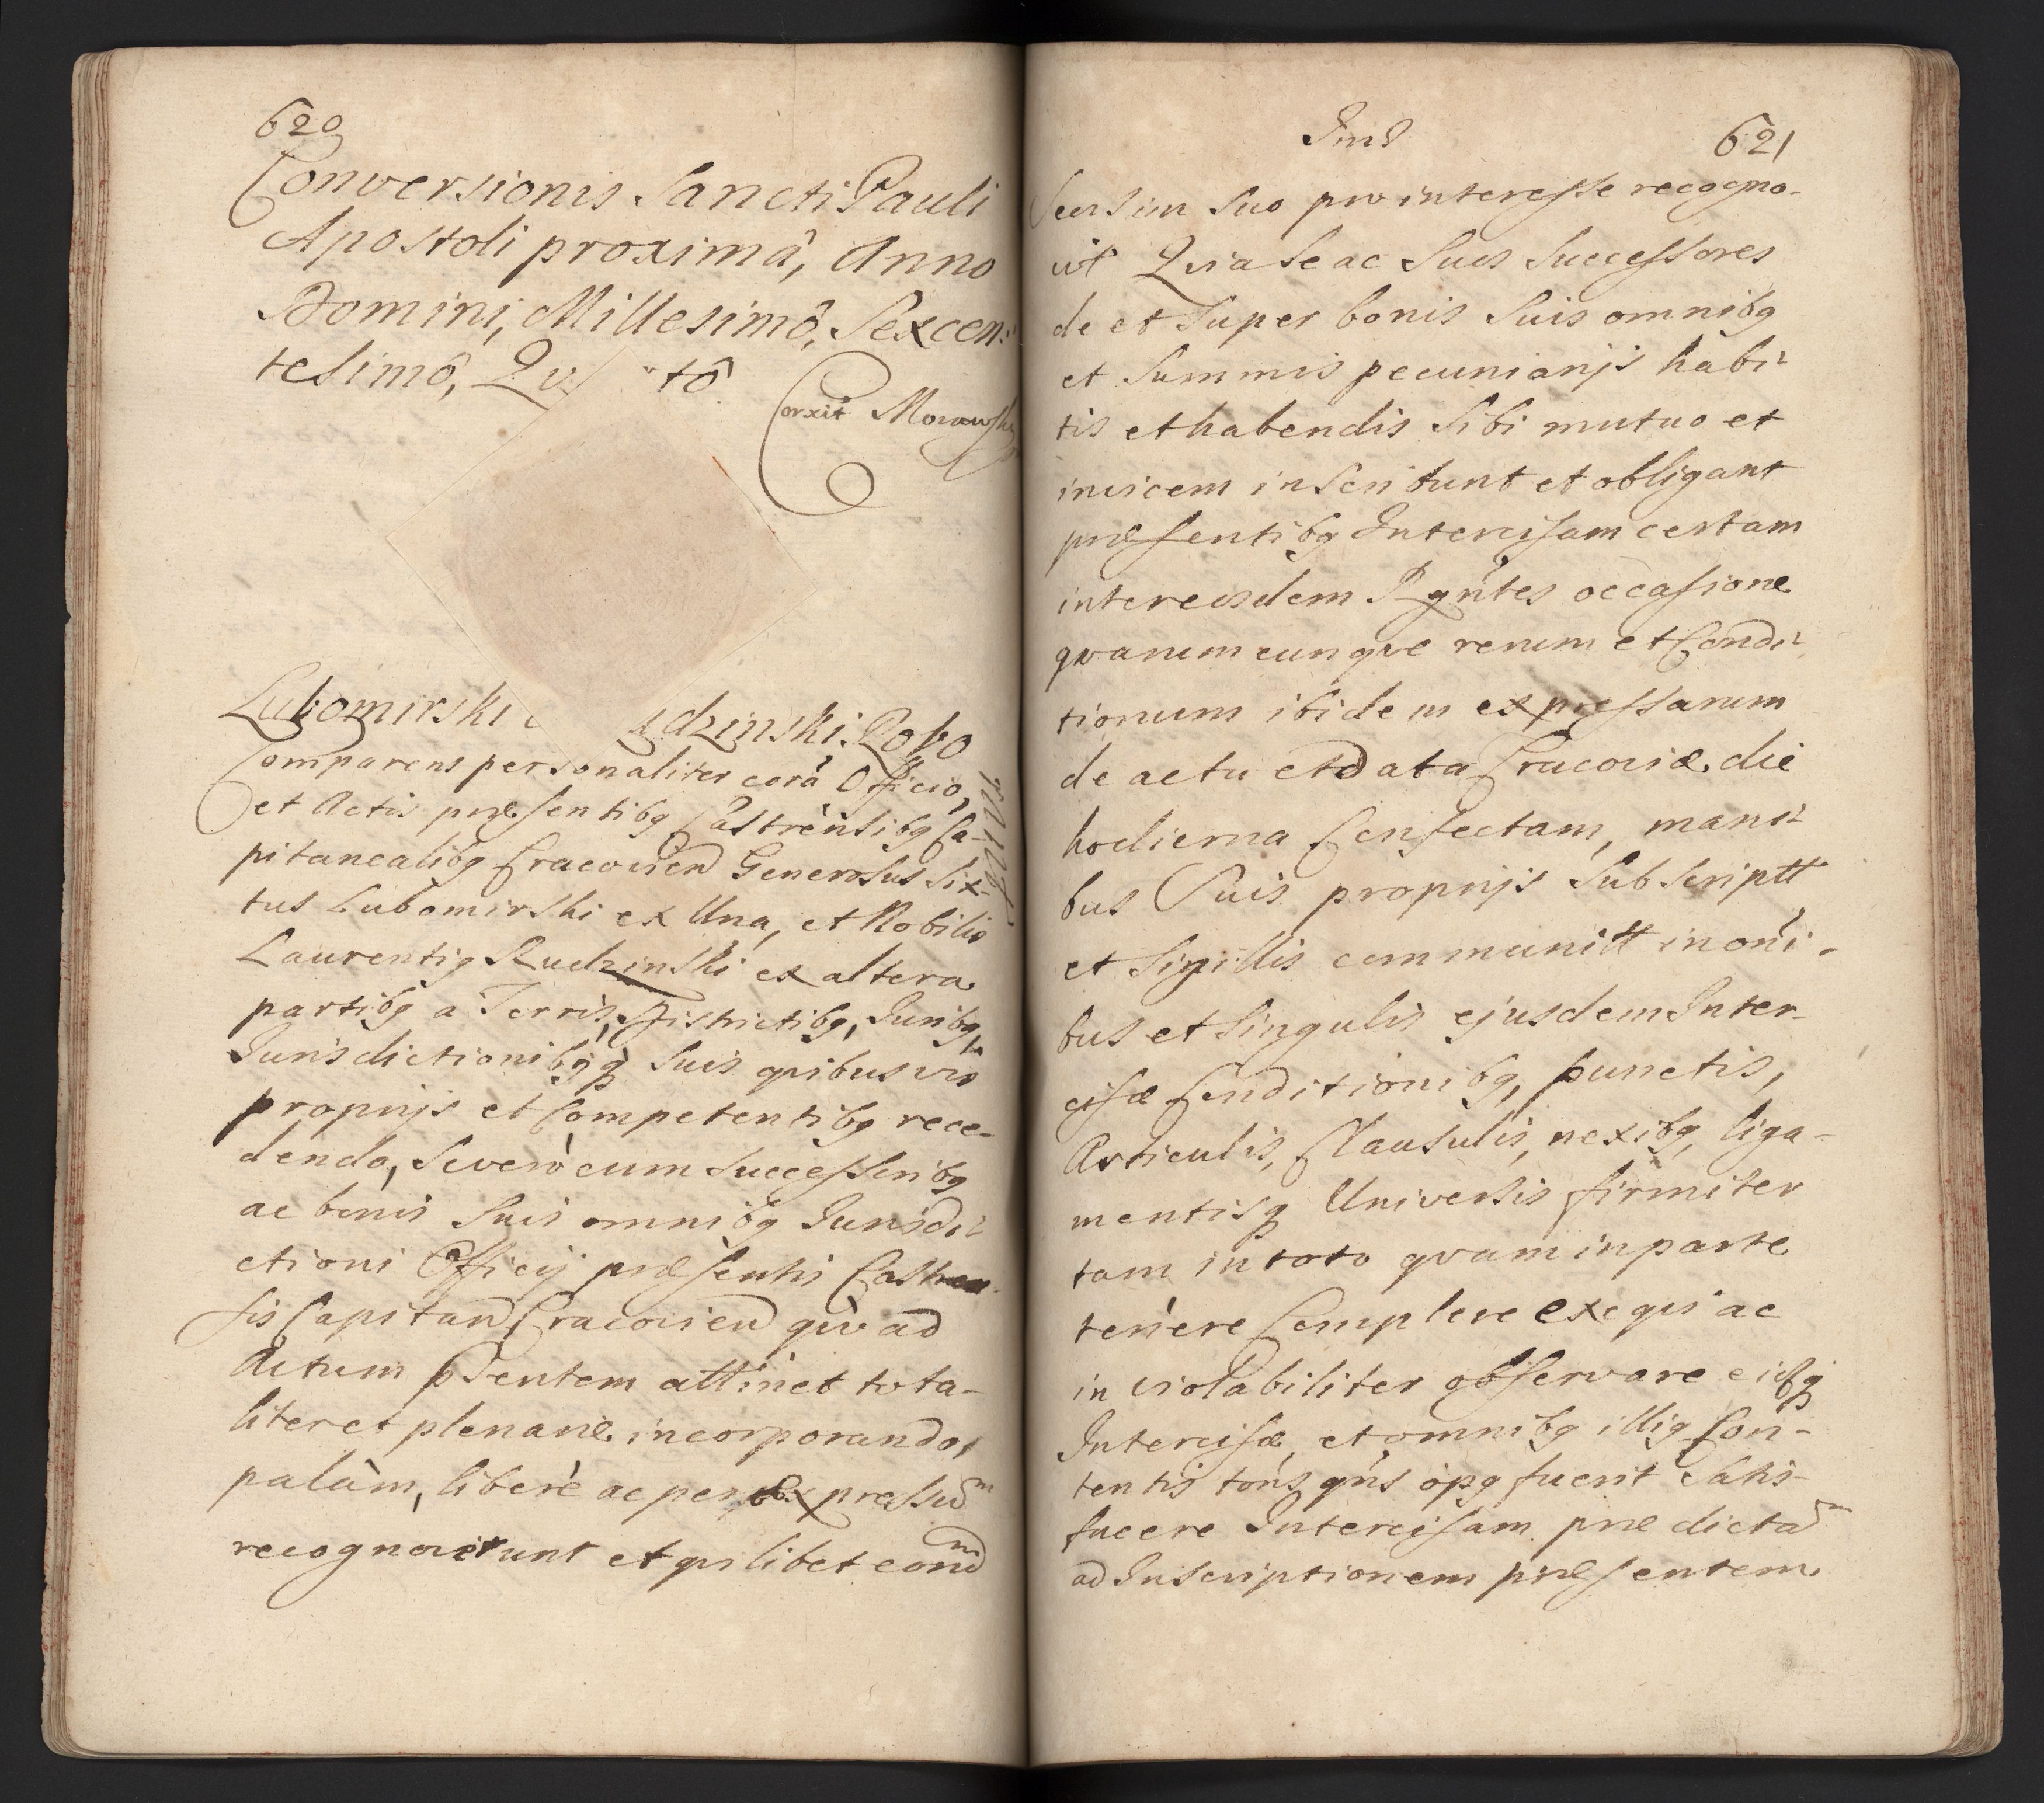 620
Conversionis Sancti Pauli
Apostoli proximâ, Anno
Domini, Millesimô, Sexcen:
tesimô, Qu tô
Corxit
Lubomirski dzinski Rogo
Comparens personaliter corã Officio,
et Actis præsentibq Castrensibq Ca-
pitanealibq Cracovien Generosus Six-
tus Lubomirski ex Una, et Nobilis
Laurentiq Rudzinski ex altera
partibq a Terris, Districtibq, Juribq
Jurisdictionibqq suis quibusvis
proprijs et Competentibq rece-
dendo, Severò cum Successoribq
ac bonis Suis omnibq Jurisdi-
ctioni Officij præsentis Castren
sis Capitan Cracovien qùoad
Actum Psentem attinet tota-
liter et plenarie incorporando,
palàm, liberè ac per expressum
recognoverunt et quilibet eorum
621
Seorsim Suo pro interesse recogno-
vit Quia Se ac Suos Successores
de et Super bonis Suis omnibq
et Summis pecuniarijs habi-
tis et habendis Sibi mutuo et
invicem inscribunt et obligant
præsentibq Intercisam certam
inter eosdem Rgntes occasione
quarumcunque rerum et Condi-
tionum ibidem expressarum
de actu et data Cracoviæ die
hodierna Confectam, mani-
bus Suis proprijs Subscriptt
et Sigillis communitt in oni-
bus et Singulis ejusdem Inter-
cisæ Conditionibq, punctis,
Articulis, Clausulis, nexibq, liga-
mentisq Universis firmiter
tam in toto quam in parte
tenere Complere exequi ac
inviolabiliter observare eisq
Intercisæ, et omnibq illiq Con-
tentis tons qns opq fuerit Satis-
facere Intercisam præ dictam
ad Inscriptionem præsentem